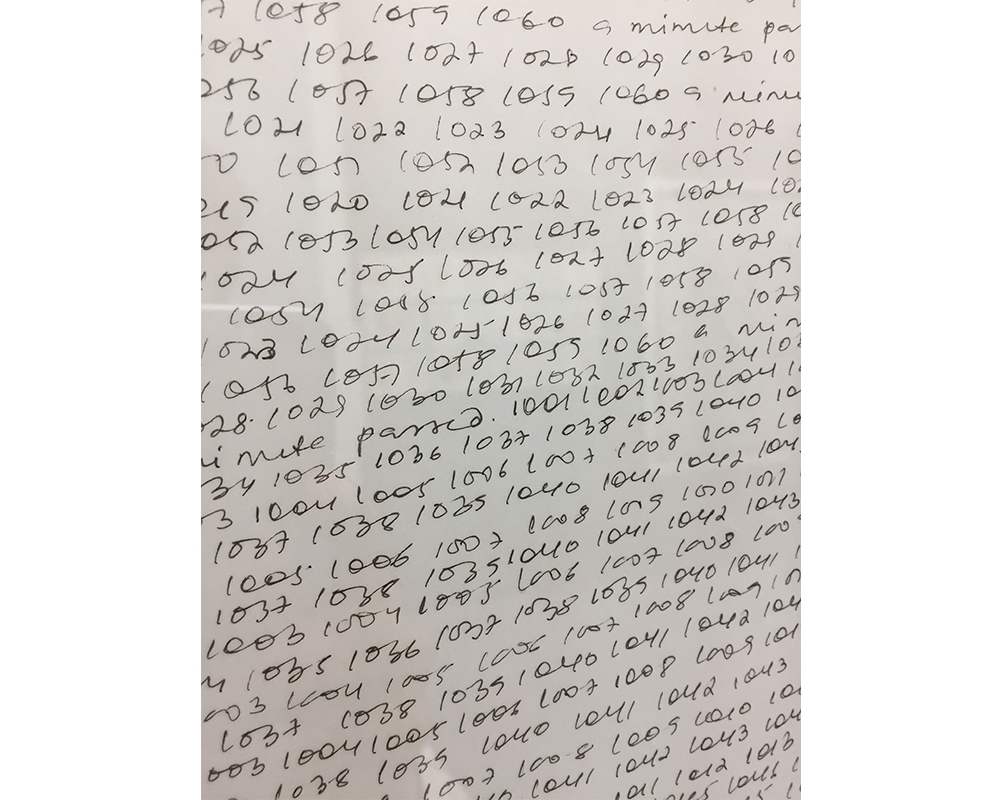 7 1058 1059 1060 a minute pa
1025 1026 1027 1028 1029 1030 10
056 1057 1058 1059 1060 a minu
1021 1022 1023 1024 1025 1026 1
0 1051 1052 1053 1054 1055 10
019 1020 1021 1022 1023 1024 102
052 1053 1054 1055 1056 1057 1058 10
1024 1025 1026 1027 1028 1029 1
1054 1055 1056 1057 1058 1059
1023 1024 1025 1026 1027 1028 1029
1056 1057 1058 1059 1060 a min
028 1029 1030 1031 1032 1033 1034 103
minute passed. 1001 1002 1003 1004 1
34 1035 1036 1037 1038 1039 1040 10
3 1004 1005 1006 1007 1008 1009 10
1037 1038 1039 1040 1041 1042 104
1005 1006 1007 1008 1009 1010 1011
1037 1038 1039 1040 1041 1042 1043
1003 1004 1005 1006 1007 1008 100
4 1035 1036 1037 1038 1039 1040 1041 1
003 1004 1005 1006 1007 1008 1009 10
1037 1038 1039 1040 1041 1042 104
003 1004 1005 1006 1007 1008 1009 101
1038 1039 1040 1041 1042 1043
1007 1008 1009 1010 10
1041 1042 1043 104
1011 1012 1013